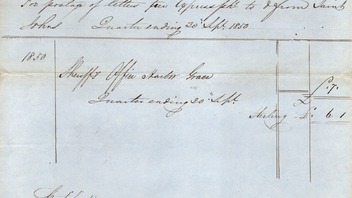 For postage of letters per Express pkt to & from Saint
Johns Quarter ending 30 Sept. 1850
1850
Sheriff's Office Harbor Grace
Quarter ending 30 Sept.
£ 7
Sterling £ 6 1